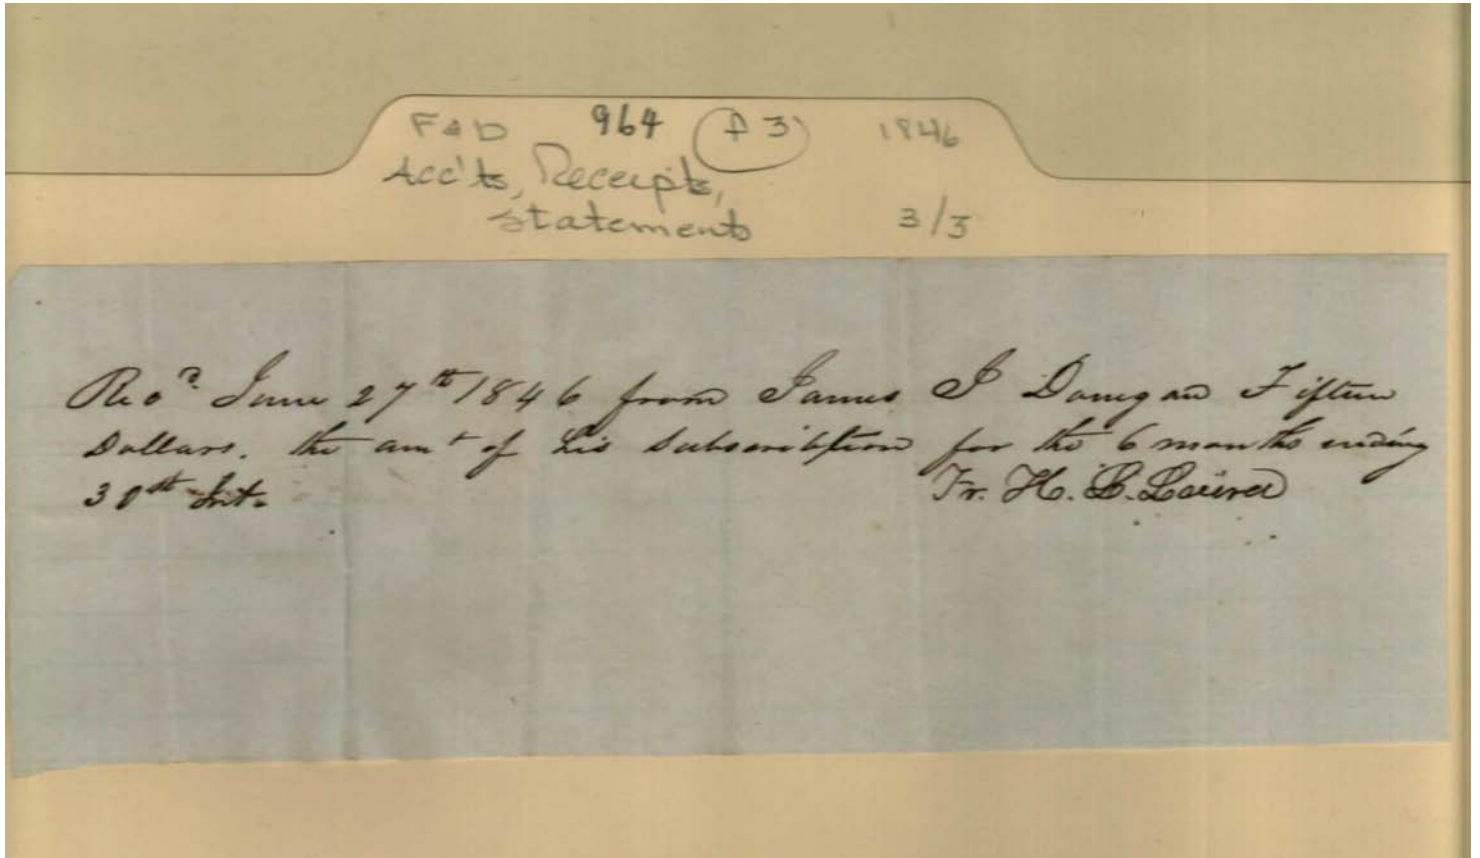 FAD 964 f 3 1846
Acc'ts, Receipts,
Statements 3/3
Recd June 27th 1846 from James J Donegan Fifteen
Dollars. the amt of his subscription for the 6 months ending
30st Int.
Fr. H. L.